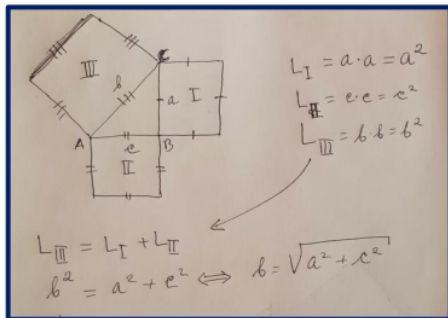 III
C
b
a
I
A
c
B
II
L_I = a·a = a²
L_II = c·c = c²
L_III = b·b = b²
L_III = L_I + L_II
b² = a² + c² ⟺ b = √(a² + c²)